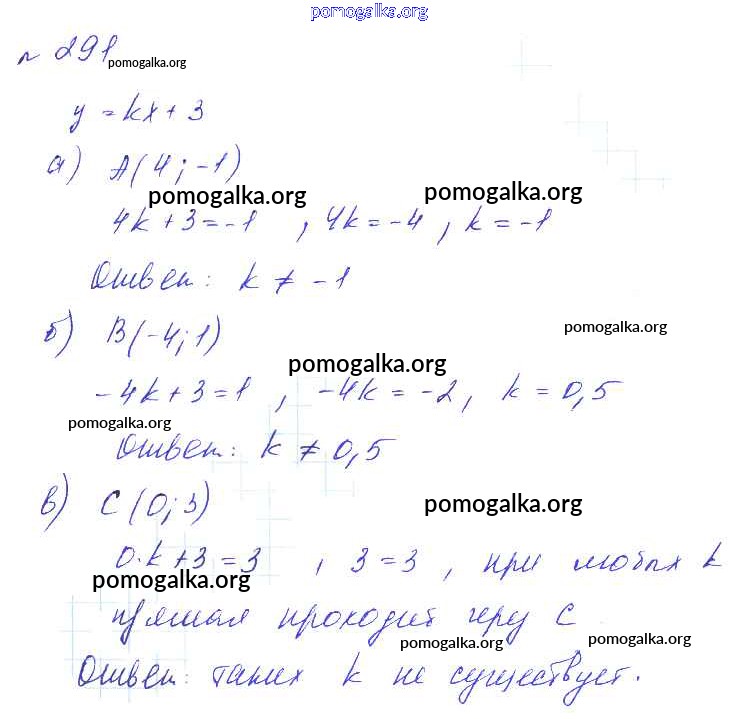 pomogalka.org
№ 291
pomogalka.org
y = kx + 3
а) A(4; -1)
pomogalka.org pomogalka.org
4k + 3 = -1 , 4k = -4 , k = -1
Ответ: k ≠ -1
б) B(-4; 1)
pomogalka.org
pomogalka.org
-4k + 3 = 1 , -4k = -2, k = 0,5
pomogalka.org
Ответ: k ≠ 0,5
в) C(0; 3)
pomogalka.org
0·k + 3 = 3 , 3 = 3 , при любых k
pomogalka.org
прямая проходит через C
pomogalka.org pomogalka.org
Ответ: таких k не существует.